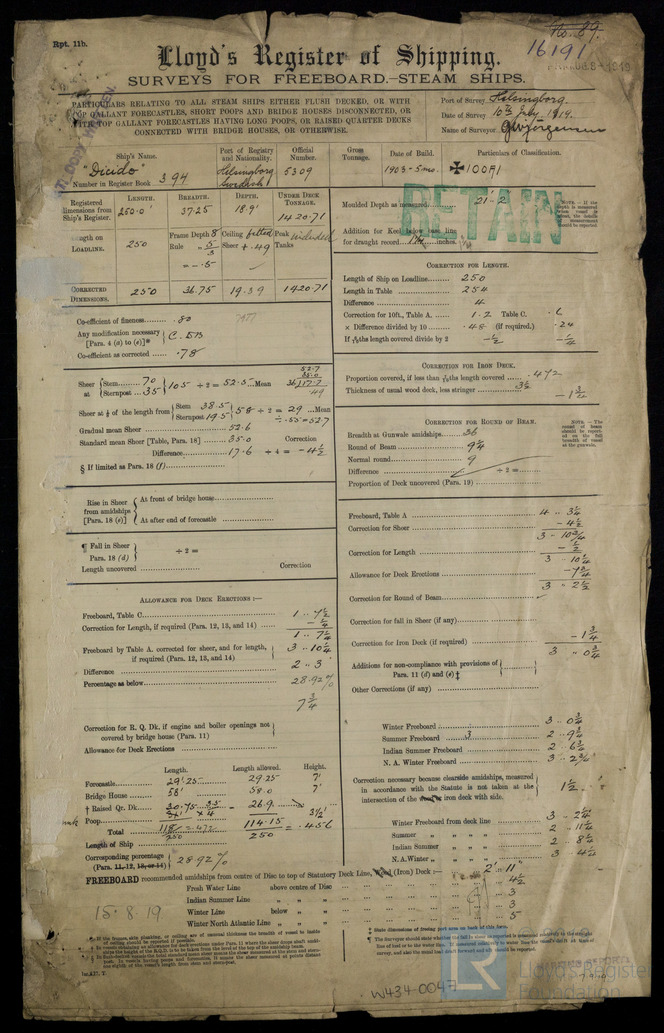 Rpt. 11b.
16191
Lloyd's Register of Shipping.
SURVEYS FOR FREEBOARD.—STEAM SHIPS.
PARTICULARS RELATING TO ALL STEAM SHIPS EITHER FLUSH DECKED, OR WITH
TOP GALLANT FORECASTLES, SHORT POOPS AND BRIDGE HOUSES DISCONNECTED, OR
WITH TOP GALLANT FORECASTLES HAVING LONG POOPS, OR RAISED QUARTER DECKS
CONNECTED WITH BRIDGE HOUSES, OR OTHERWISE.
Port of Survey Helsingborg.
Date of Survey 10th July 1914.
Name of Surveyor
Ship's Name. Port of Registry and Nationality. Official Number. Gross Tonnage. Date of Build. Particulars of Classification.
"Dicido" Helsingborg Swedish 5309 1903-5mo. ✠100A1
Number in Register Book 394
LENGTH. BREADTH. DEPTH. UNDER DECK TONNAGE.
Registered dimensions from Ship's Register. 250.0 37.25 18.9 1420.71
Length on LOADLINE. 250 Frame Depth 8 Rule Ceiling fitted Sheer + .49 Peak Tanks included
CORRECTED DIMENSIONS. 250 36.75 19.39 1420.71
Moulded Depth as measured 21' 2
RETAIN
Addition for Keel below base line
for draught record inches
Co-efficient of fineness .80
Any modification necessary [Para. 4 (a) to (e)]*
Co-efficient as corrected .78
Sheer at Stem 70 Sternpost 35 105 ÷ 2 = 52.5 Mean
Sheer at ⅛ of the length from Stem 38.5 Sternpost 19.5 58 ÷ 2 = 29 Mean ÷ .55 = 52.7
Gradual mean Sheer 52.6
Standard mean Sheer [Table, Para. 18] 35.0 Correction
Difference 17.6 ÷ 4 = -4½
§ If limited as Para. 18 (f)
Rise in Sheer from amidships [Para. 18 (e)] At front of bridge house
At after end of forecastle
¶ Fall in Sheer Para. 18 (d) ÷ 2 =
Length uncovered Correction
ALLOWANCE FOR DECK ERECTIONS :—
Freeboard, Table C 1 .. 7½
Correction for Length, if required (Para. 12, 13, and 14) -¼
1 .. 7¼
Freeboard by Table A. corrected for sheer, and for length, if required (Para. 12, 13, and 14) 3 .. 10¼
Difference 2 .. 3
Percentage as below 28.92%
7¾
Correction for R. Q. Dk. if engine and boiler openings not covered by bridge house (Para. 11)
Allowance for Deck Erections
Length. Length allowed. Height.
Forecastle 29'.25 29.25 7'
Bridge House 58' 58.0 7'
† Raised Qr. Dk. 26.9
Poop 3½'
Total 118 = .472 114.15 = .456
Length of Ship 250 250
Corresponding percentage (Para. 11, 12, 13, or 14) 28.92%
CORRECTION FOR LENGTH.
Length of Ship on Loadline 250
Length in Table 254
Difference 4
Correction for 10ft., Table A. 1.2 Table C. .6
× Difference divided by 10 .48 (if required.) .24
If 6/10ths length covered divide by 2 -½ -¼
CORRECTION FOR IRON DECK.
Proportion covered, if less than 7/10ths length covered .472
Thickness of usual wood deck, less stringer 3½ -1¾
CORRECTION FOR ROUND OF BEAM.
Breadth at Gunwale amidships 36
Round of Beam 9¼
Normal round 9
Difference ÷ 2 =
Proportion of Deck uncovered (Para. 19)
Freeboard, Table A 4 .. 3¼
Correction for Sheer -4½
3 - 10¾
Correction for Length -½
3 10¼
Allowance for Deck Erections -7¾
3 2½
Correction for Round of Beam
Correction for fall in Sheer (if any)
Correction for Iron Deck (if required) -1¾
3 .. 0¾
Additions for non-compliance with provisions of Para. 11 (d) and (e) ‡
Other Corrections (if any)
Winter Freeboard 3 .. 0¾
Summer Freeboard 2 .. 9¾
Indian Summer Freeboard 2 .. 6¾
N. A. Winter Freeboard 3 .. 2¾
Correction necessary because clearside amidships, measured in accordance with the Statute is not taken at the intersection of the iron deck with side. 1½
Winter Freeboard from deck line 3 .. 2¼
Summer " " " " 2 .. 11¼
Indian Summer " " " 2 .. 8¼
N.A. Winter " " " 3 4¼
FREEBOARD recommended amidships from centre of Disc to top of Statutory Deck Line, (Iron) Deck :— 2' .. 11"
Fresh Water Line above centre of Disc 4½
Indian Summer Line " " 3
Winter Line below " 3
Winter North Atlantic Line " " 5
15.8.19
W434-0047
LR
Lloyd's Register
Foundation